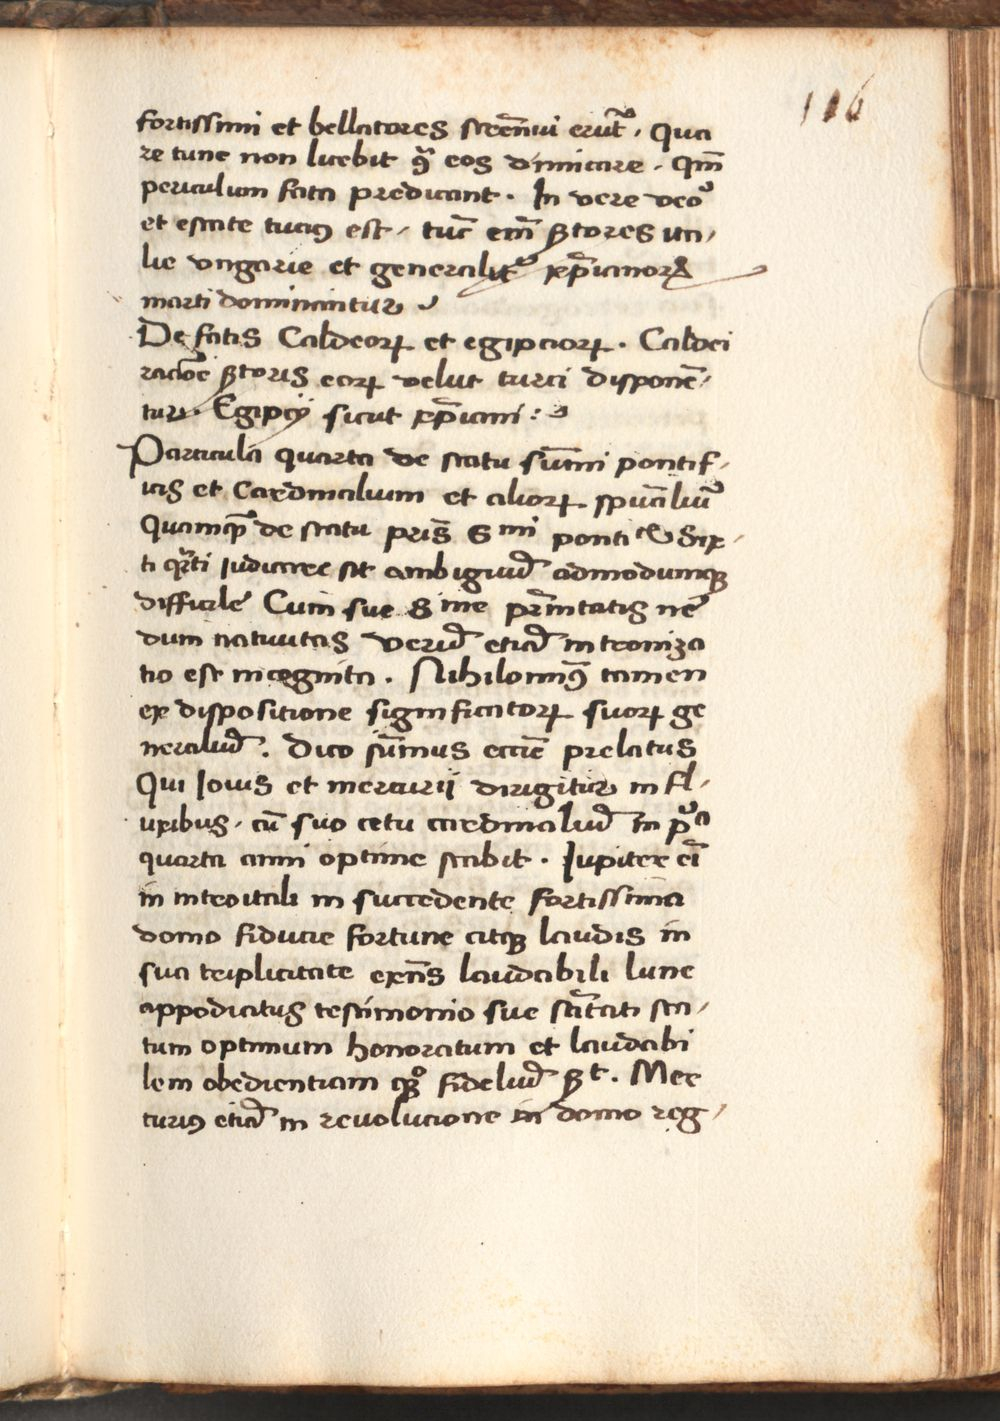 116
fortissimi et bellatores strēnui erūt. Qua
re tunc non licebit ꝯ̄ eos dimicare. Qm̄
periculum fata predicant. In vere vero
et estate tucius est, tūc em̄ ꝓtores ita,
lie vngarie et generalit͛ xp̄ianorꝝ
marti dominantur
De fatis Caldeorꝝ et egipciorꝝ. Caldei
racōe ꝓtoris eorꝝ velut turci disponē,
tur. Egipcij sicut xp̄iani :
Particula quarta de statu sūmi pontif,
icis et Cardinalium et aliorꝝ spūaliū
Quamqꝫ de statu pr̄is Smi ponti Six,
ti qr̄ti iudicare sit ambiguū admodumqꝫ
difficile Cum sue Sme pr̄nitatis ne
dum natiuitas verū etiā introniza
tio est incognita. Nihilominꝰ tamen
ex dispositione significatorꝝ suorꝝ ge
neraliū. Dico sūmus eccie prelatus
Qui Iouis et mercurii dirigitur in fl,
uxibus, cū suo cetu cardinaliū in pª
quarta anni optime stabit. Iupiter ei
in introitali in succedente fortissima
domo fiducie fortune atqꝫ laudis in
sua triplicitate exn̄s laudabili lune
appodiatus testimonio sue sāctitati sta,
tum optimum honoratum et laudabi
lem obedientiam qꝫ fideliū ꝓt. Mer
curius etiā in reuolucione in domo reg,